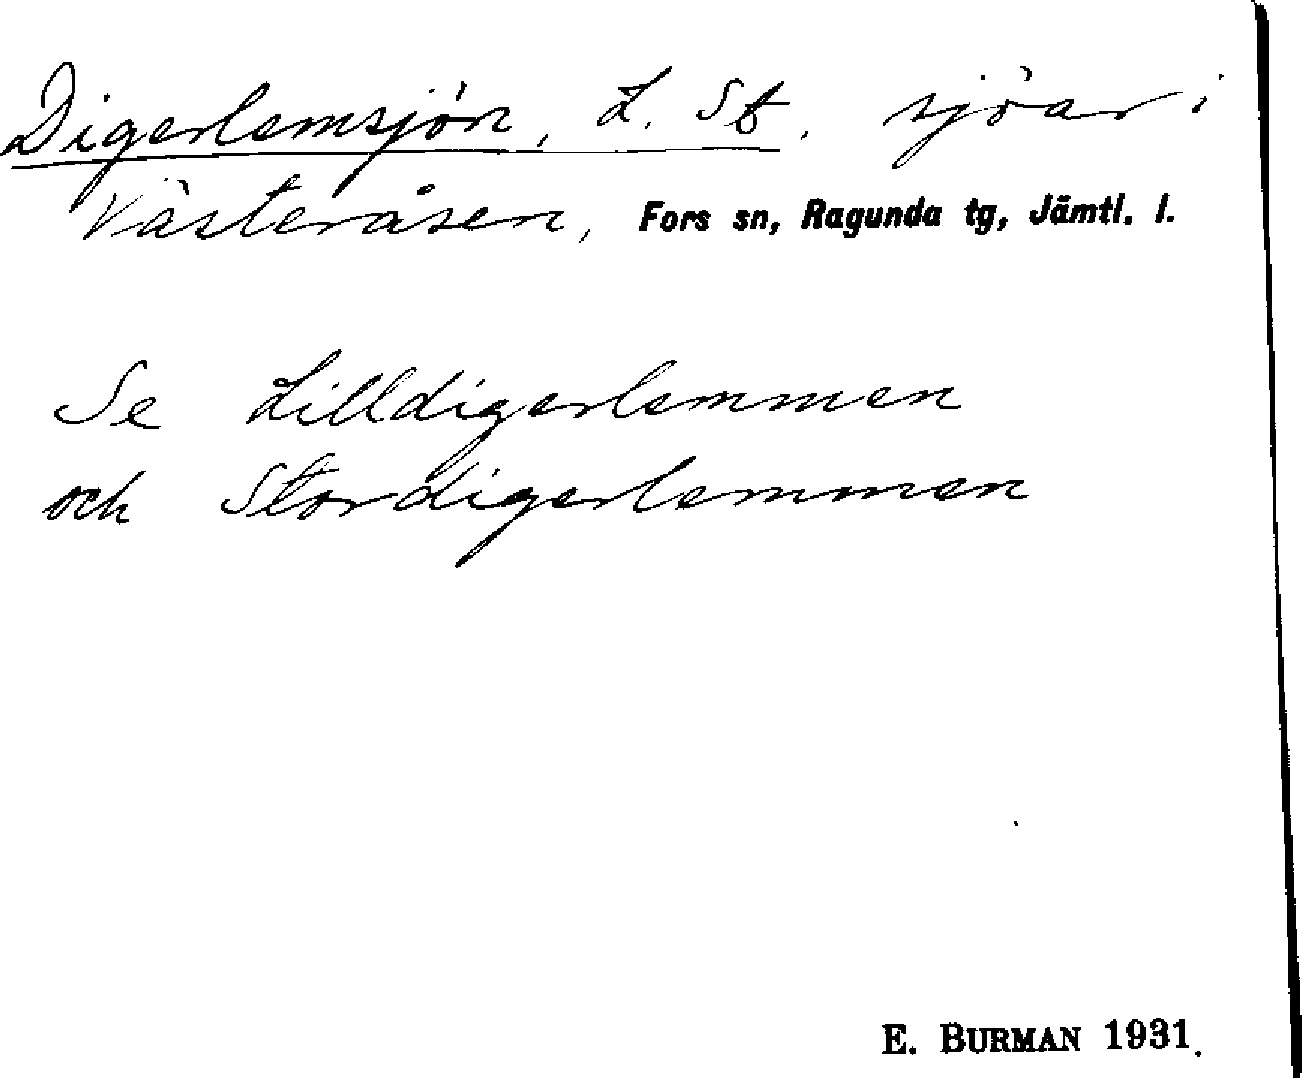 Digerlemsjön, L. St. sjöar i
Västeråsen, Fors sn, Ragunda tg, Jämtl. l.
Se Lilldigerlemmen
och Stordigerlemmen
E. BURMAN 1931.